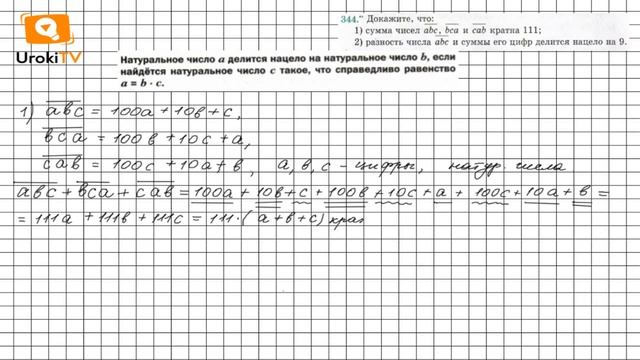 UrokiTV
344.” Докажите, что:
1) сумма чисел abc, bca и cab кратна 111;
2) разность числа abc и суммы его цифр делится нацело на 9.
Натуральное число a делится нацело на натуральное число b, если
найдётся натуральное число c такое, что справедливо равенство
a = b · c.
1) abc = 100a + 10в + c,
вca = 100в + 10c + a,
caв = 100c + 10a + в, a, в, c – цифры, натур. числа
abc + вca + caв = 100a + 10в + c + 100в + 10c + a + 100c + 10a + в =
= 111a + 111в + 111c = 111·(a + в + c) крат